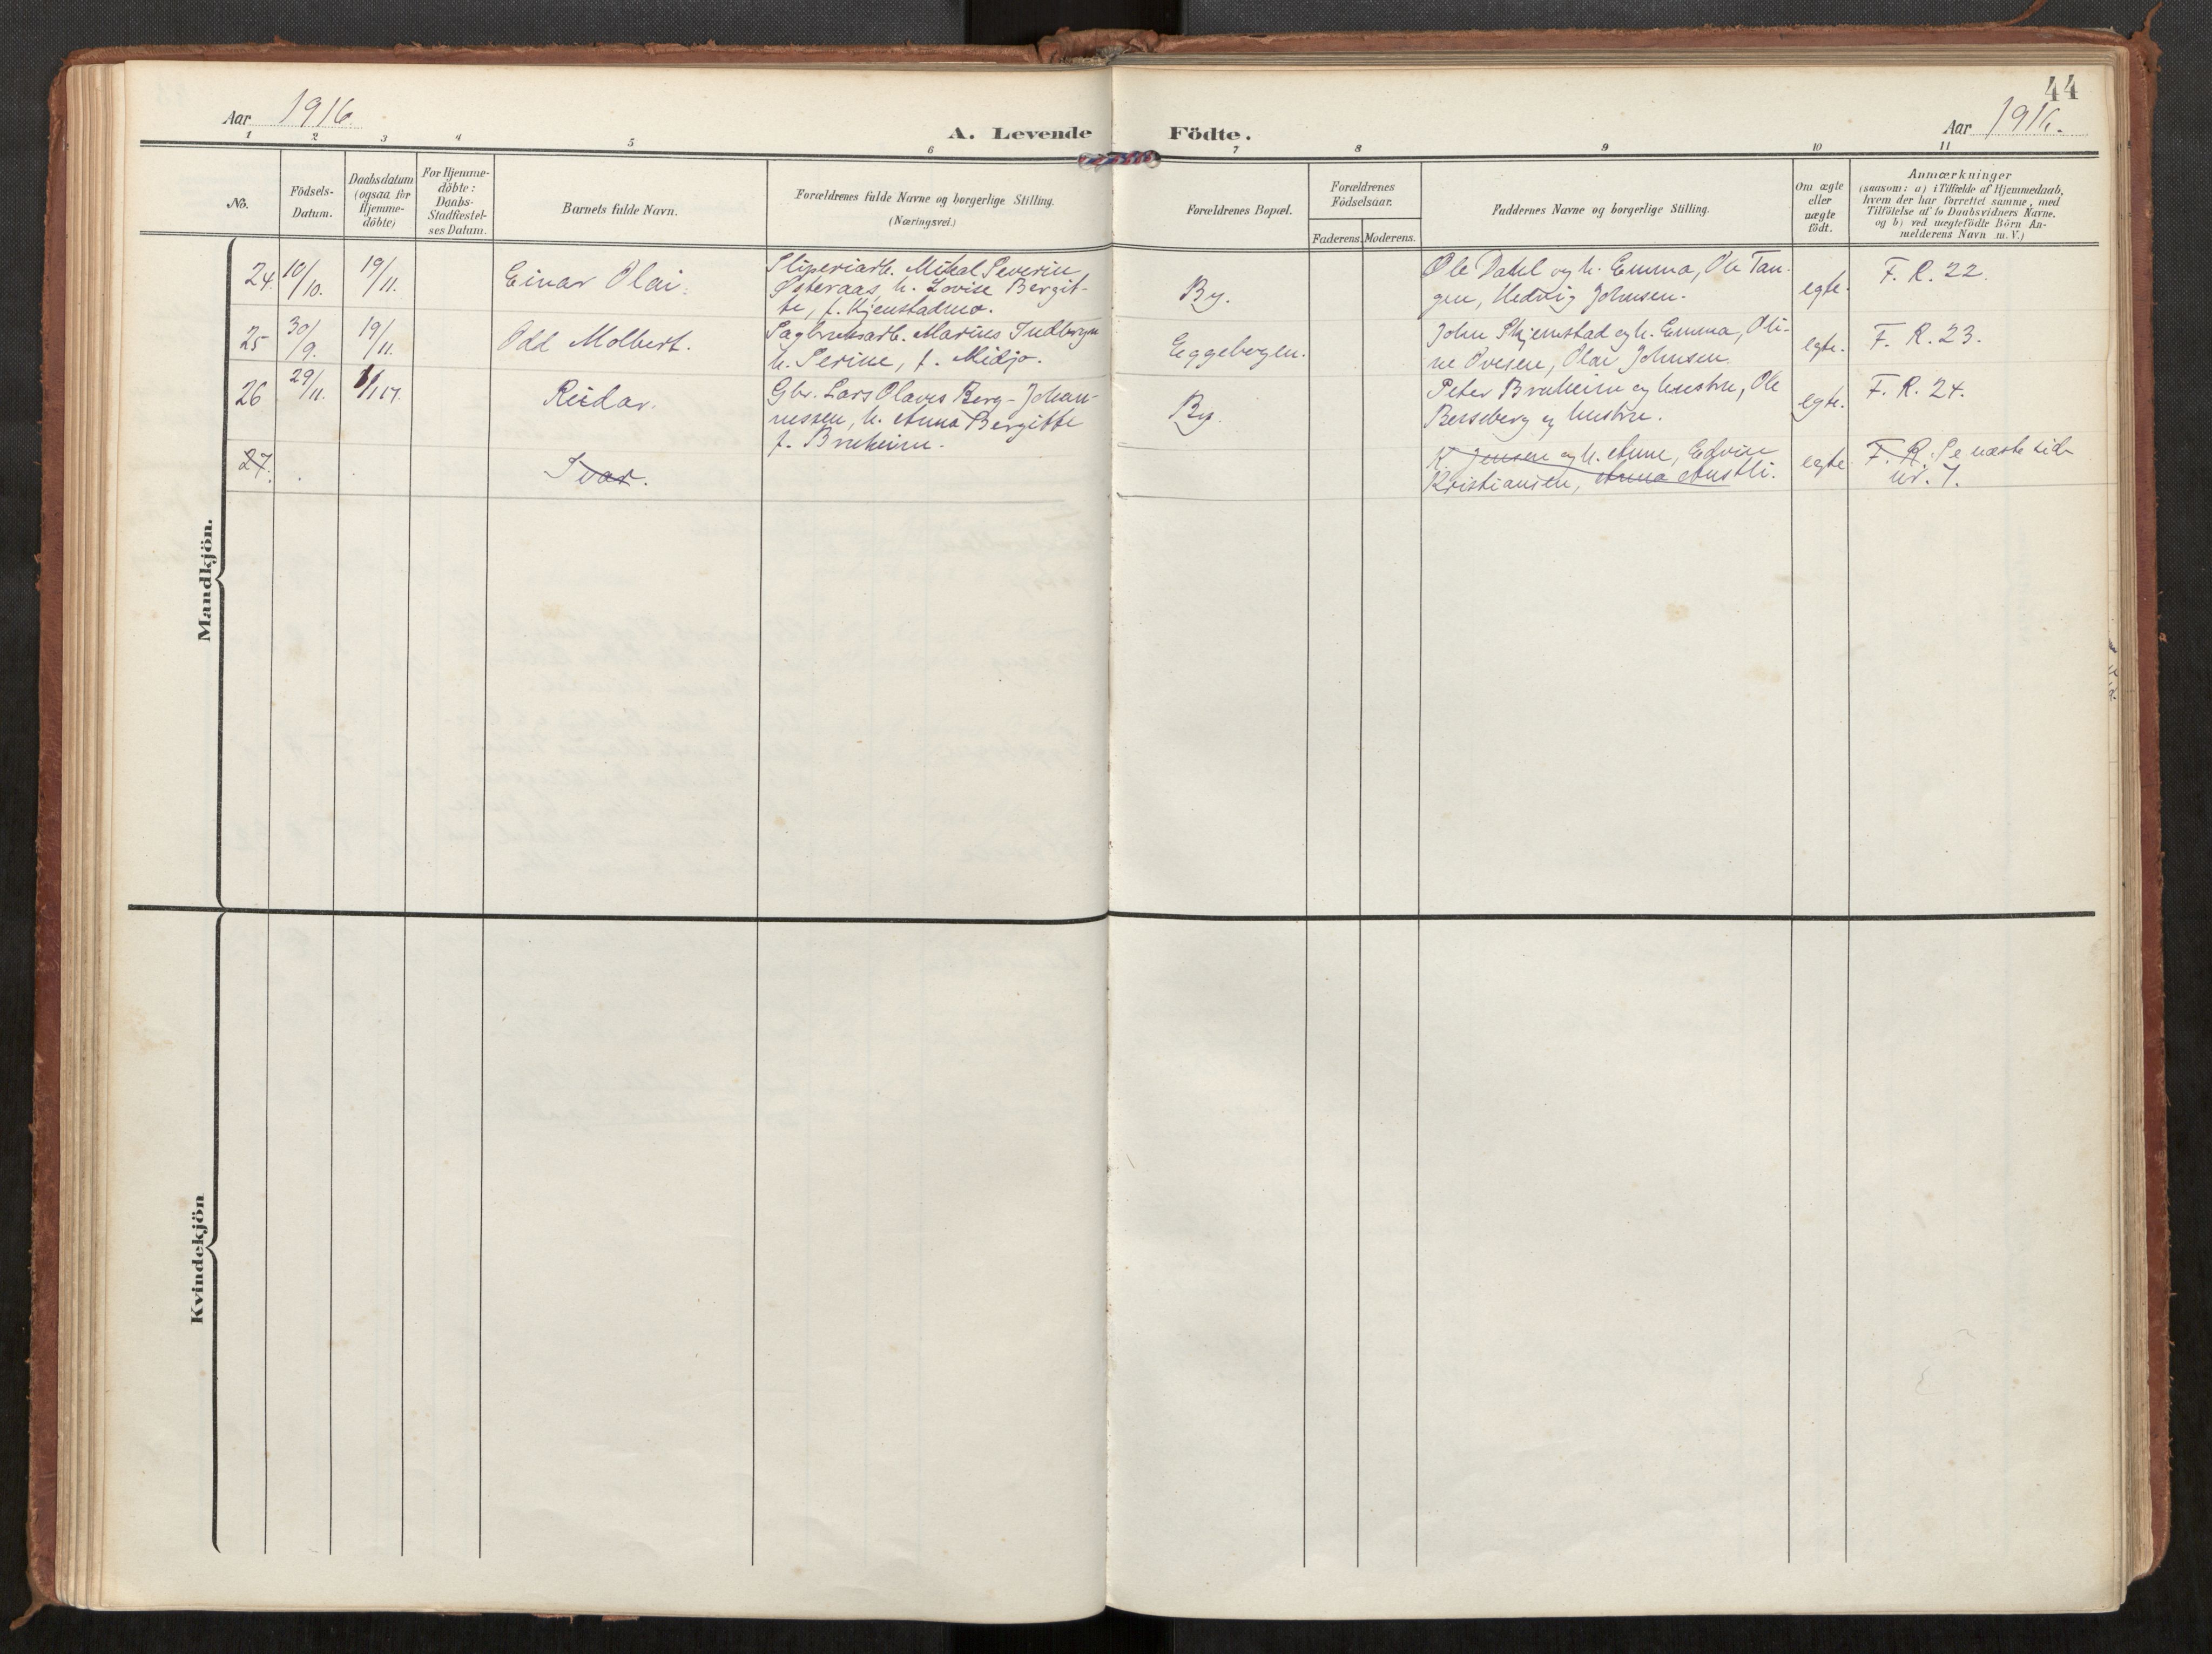 44
Aar 1916.
A. Levende Födte.
Aar 1916.
1 2 3 4 5 6 7 8 9 10 11
No.
Födsels-
Datum.
Daabsdatum
(ogsaa for
Hjemme-
döbte)
For Hjemme-
döbte:
Daabs-
Stadfæstel-
ses Datum.
Barnets fulde Navn.
Forældrenes fulde Navne og borgerlige Stilling.
(Næringsvei.)
Forældrenes Bopæl.
Forældrenes
Födselsaar.
Faderens. Moderens.
Faddernes Navne og borgerlige Stilling.
Om ægte
eller
uægte
födt.
Anmærkninger
(saasom: a) i Tilfælde af Hjemmedaab,
hvem der har forrettet samme, med
Tilföielse af to Daabsvidners Navne,
og b) ved uægtefödte Börn An-
melderens Navn m. V.)
Mandkjön.
24. 10/10. 19/11. Einar Olai.
Sliperiarb. Mikal Severin
Østeraas, h. Lovise Bergit-
te, f. Kjenstadmo.
By.
Ole Dahl og h. Emma, Ole Tan-
gen, Hedvig Johnsen.
egte. F. R. 22.
25 30/9. 19/11. Odd Molbert.
Sagbruksarb. Marius Indbryn
h. Serine, f. Midjo.
Eggebogen.
John Skjemstad og h. Emma, Oli-
ne Ovesen, Olai Johnsen.
egte. F. R. 23.
26 29/11. 1/1 17. Reidar.
Gbr. Lars Olaves Berg-Johan-
nessen, h. Anna Bergitte
f. Bruheim.
By.
Peter Bruheim og hustru, Ole
Berseberg og hustru.
egte. F. R. 24.
27. Ivar.
K. Jensen og h. Anne, Edvin
Kristiansen, Anna Austli.
egte F. R. Se næste side
nr. 7.
Kvindekjön